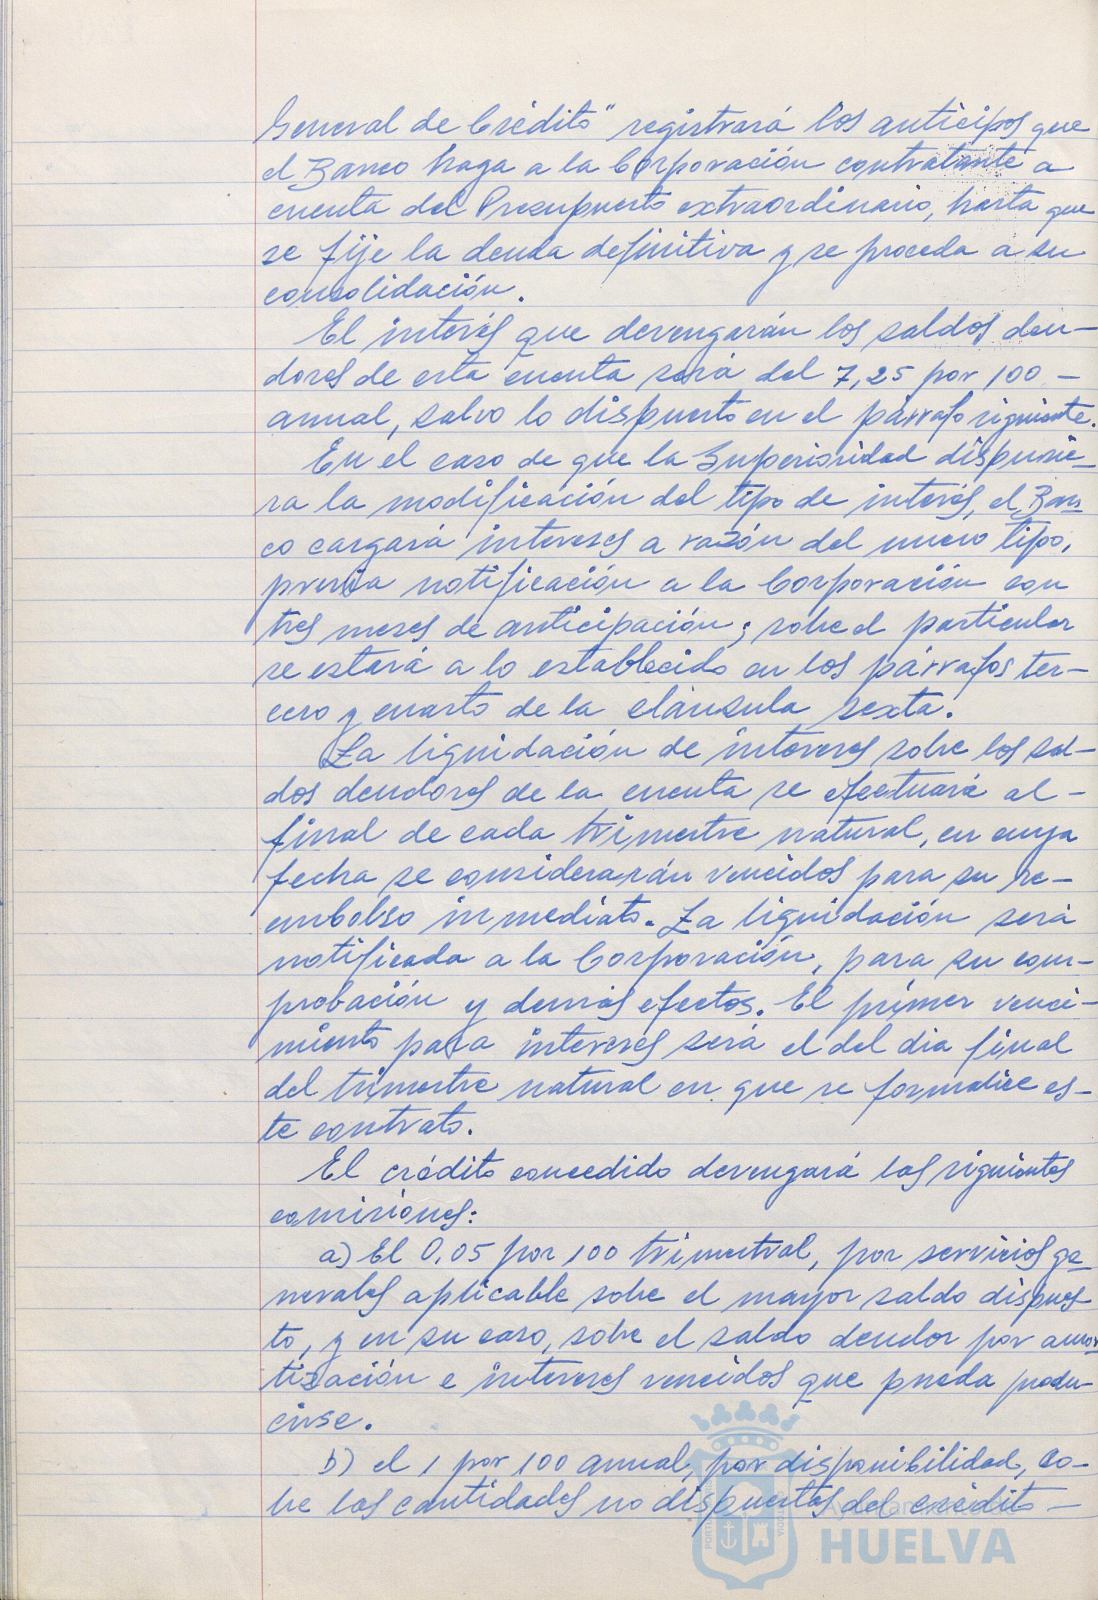 General de Crédito" registrará los anticipos que
el Banco haga a la Corporación contratante a
cuenta del Presupuesto extraordinario, hasta que
se fije la deuda definitiva y se proceda a su
consolidación.
El interés que devengarán los saldos deu-
dores de esta cuenta será del 7,25 por 100 -
anual, salvo lo dispuesto en el párrafo siguiente.
En el caso de que la Superioridad dispusie-
ra la modificación del tipo de interés, el Ban-
co cargará intereses a razón del nuevo tipo,
previa notificación a la Corporación con
tres meses de anticipación; sobre el particular
se estará a lo establecido en los párrafos ter-
cero y cuarto de la cláusula sexta.
La liquidación de intereses sobre los sal-
dos deudores de la cuenta se efectuará al -
final de cada trimestre natural, en cuya
fecha se considerarán vencidos para su re-
embolso inmediato. La liquidación será
notificada a la Corporación, para su com-
probación y demás efectos. El primer venci-
miento para intereses será el del dia final
del trimestre natural en que se formalice es-
te contrato.
El crédito concedido devengará las siguientes
comisiones:
a) El 0,05 por 100 trimestral, por servicios ge-
nerales aplicable sobre el mayor saldo dispues
to, y en su caso, sobre el saldo deudor por amor
tización e intereses vencidos que pueda produ-
cirse.
b) el 1 por 100 anual, por disponibilidad, so-
bre las cantidades no dispuestas del crédito -
Ayuntamiento de
HUELVA